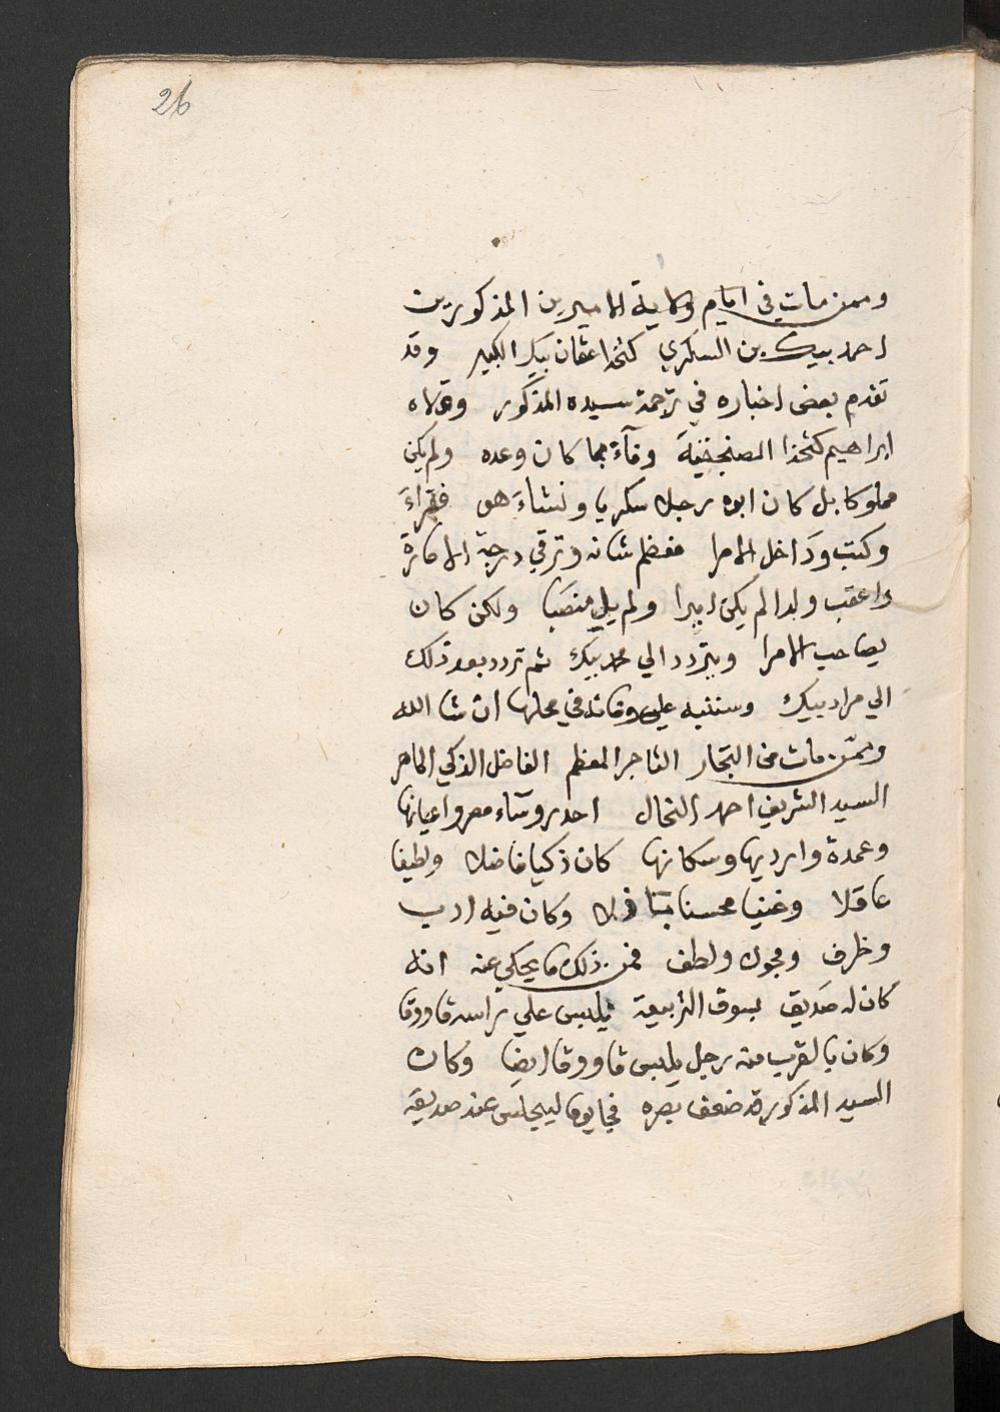 26
وممن مات في ايام ولاية الاميرين المذكورين
احمد بيك بن السكري كتخدا عثمان بيك الكبير وقد
تقدم بعض اخباره في ترجمة سيده المذكور وولاه
ابراهيم كتخدا الصنجقية وفآءً بما كان وعده ولم يكن
مملوكا بل كان ابوه رجلا سكريا ونشاءَ هو فقراءَ
وكتب وداخل الامرا فعظم شانه وترقي درجة الامارة
واعقب ولدا لم يكن اميرا ولم يلِ منصَبا ولكن كان
يصاحب الامرا ويتردد الي محمد بيك ثم تردد بعد ذلك
الي مراد بيك وسننبه علي وفاته في محلها ان شا الله
وممّن مات من التجار التاجر المعظم الفاضل الذكي الماهر
السيد الشريف احمد النحال احد روسَاء مصر واعيانها
وعمدة وارديها وسكانها كان ذكيا فاضلا ولطيفا
عاقلا وغنيا محسنا باذلا وكان فيه ادب
وظرف ومجون ولطف فمن ذلك ما يحكي عنه انه
كان له صَديق بسوق التربيعة يلبس علي راسه قاووقا
وكان بالقرب منه رجل يلبس قاووقا ايضا وكان
السيد المذكور قد ضعف بصره فجا يوما ليجلس عند صديقه